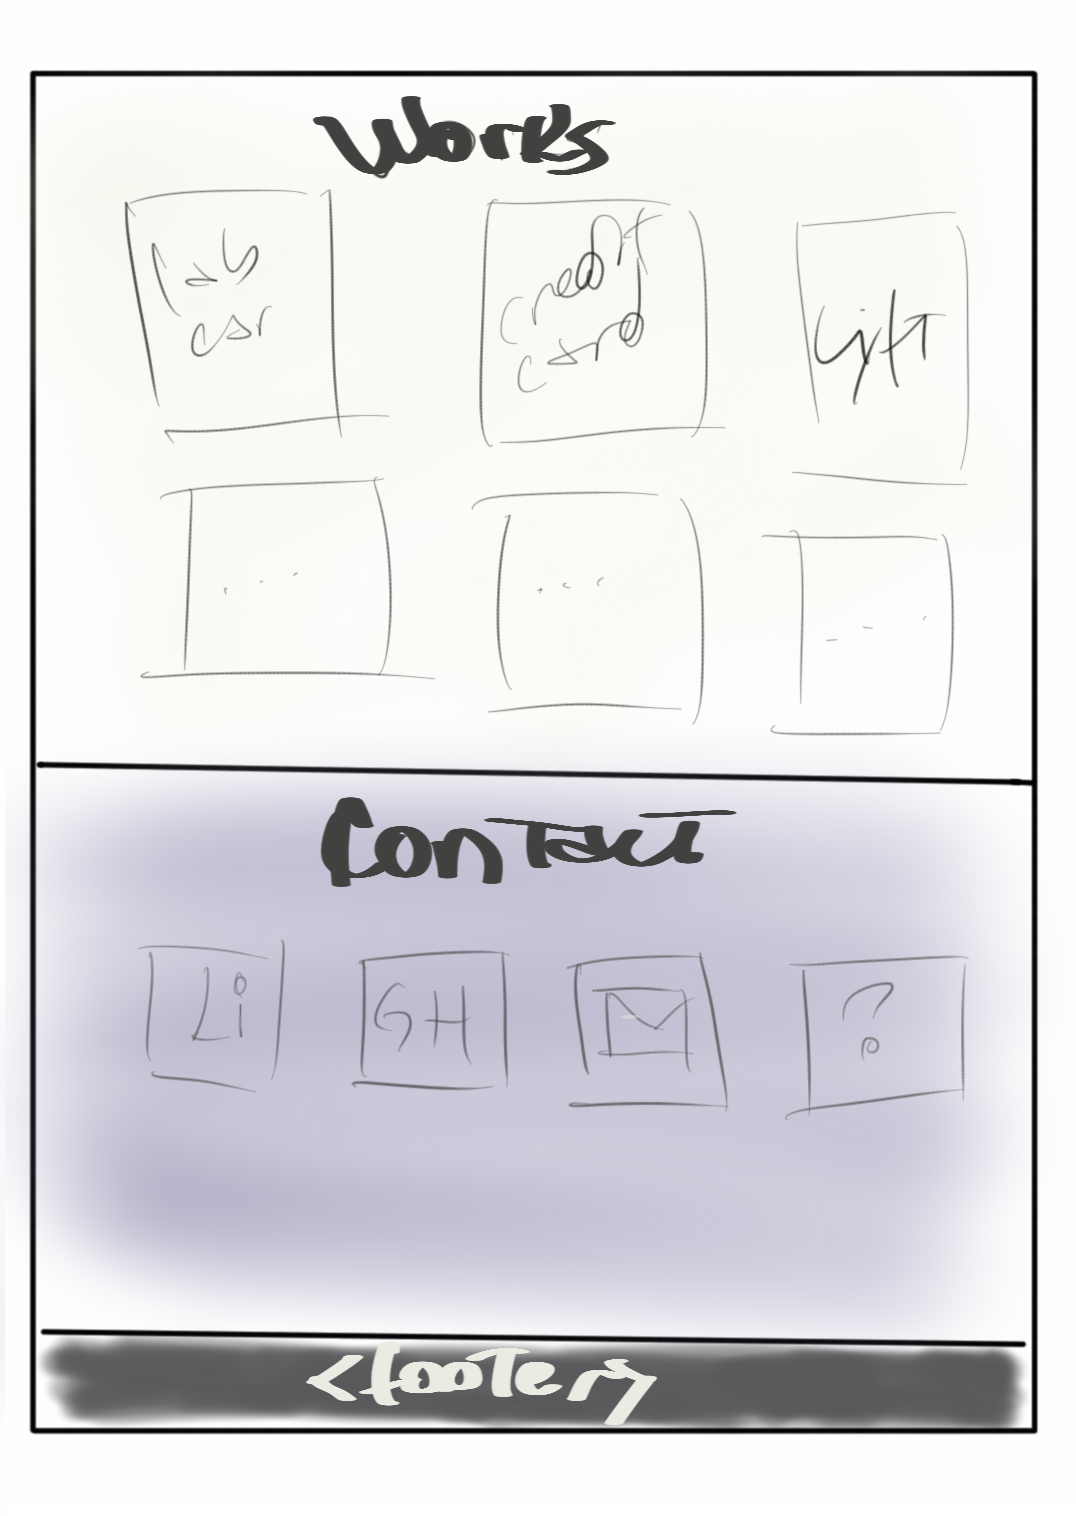 Works
car
credit
card
...
...
...
Contact
Li
GH
?
<footer>